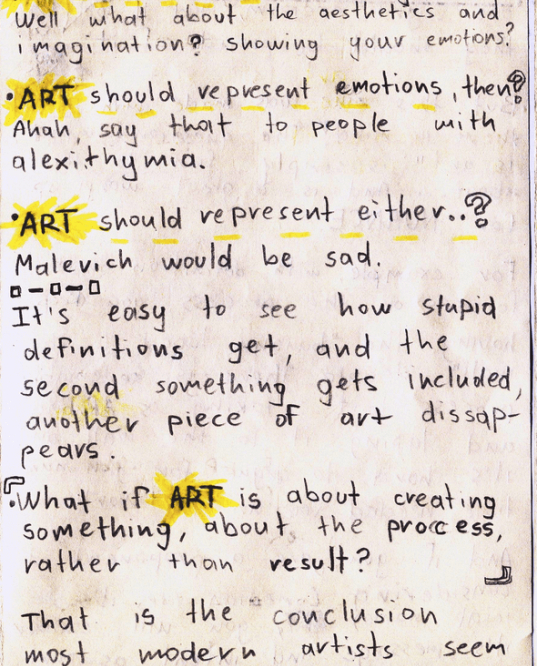 Well what about the aesthetics and
imagination? showing your emotions?
•ART should represent emotions, then?
Ahah, say that to people with
alexithymia.
•ART should represent either..?
Malevich would be sad.
It's easy to see how stupid
definitions get, and the
second something gets included,
another piece of art dissap-
pears.
What if ART is about creating
something, about the process,
rather than result?
That is the conclusion
most modern artists seem